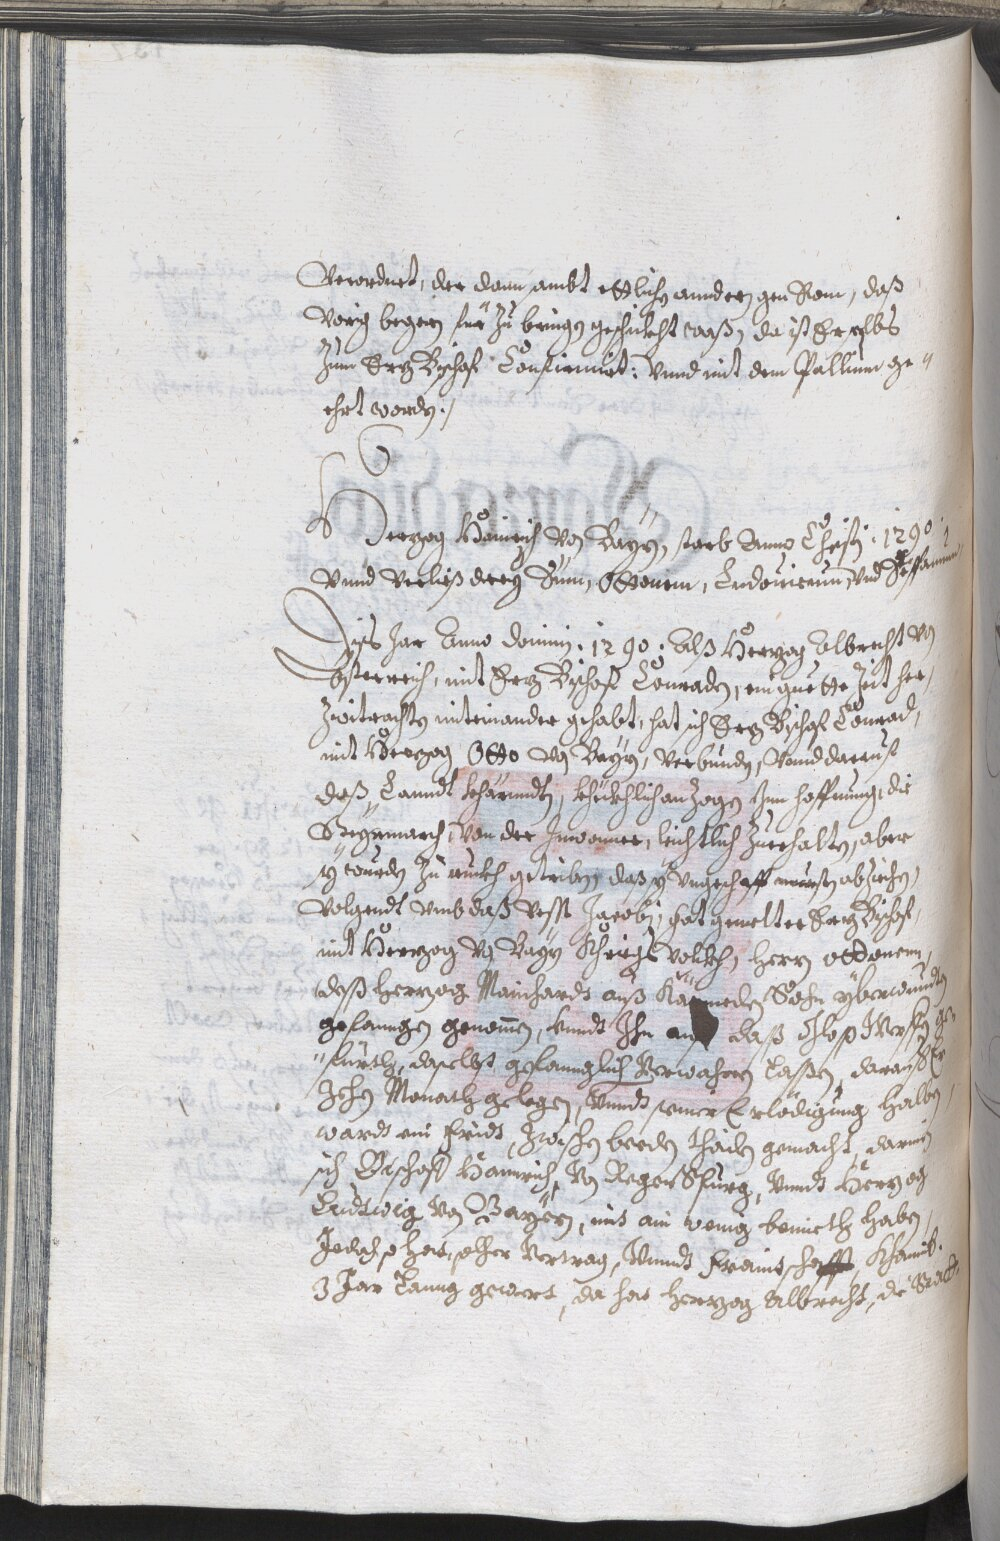 Verordnet, der dann sambt ettlichen anndern gen Rom, daß
vorig begern für zu bringen geschickht waß, da ist Er selbs
zum Ertz Bischof Confirmirt: vnnd mit dem Pallium ge-
ehrt worden./
Herzog Hainrich von Bayrn, starb Anno Christi: 1290:
vnnd verließ drey Sün, Ottonem, Ludouicum, vnd Steffanum
Diß Jar Anno domini: 1290: Alß Herzog Albrecht von
Osterreich, mit Ertz Bischof Conraden, ein guette Zeit her,
Zwitrachten miteinander gehabt, hat sich Ertz Bischof Conrad,
mit Herzog Otto von Bayrn, verbunden, vnnd darauf
daß Lanndt Khärndten, am Zogen Inn hoffnung, die
Steyrmarch, von der Inwoner, leichtlich Zuerhalten, aber
sy wurden Zu ruckh getriben, daß sy vngeschafft muesten abziechen,
Volgendt vmb daß Fesst Jacobi, hat gemelter Ertz Bischof,
mit Herzog von Bayrn Khriegs Volkh, herrn ottonem,
deß herzog Mainhardt auß Kärnnden Sohn yberwundten
gefanngen genomen, vnndt Ihn auf daß Schloß Werffen ge-
fürth, daselbst gefanngklich Verwahren Lassen, darauf Er
Zehen Monath gelegen, Vnndt seiner Erlödigung halben
wardt ein fridt, Zwischen beeden thailn gemacht, darin
sich Bischoff Hainrich, von Regenspurg, vnndt Herzog
Ludtwig von Bayrn, nit ain wenig bemieth haben,
Jedoch hat solcher Vertrag, vnndt Fraintschafft, khaumb.
3 Jar Lanng gewert, da hat herzog Albrecht, die Statt